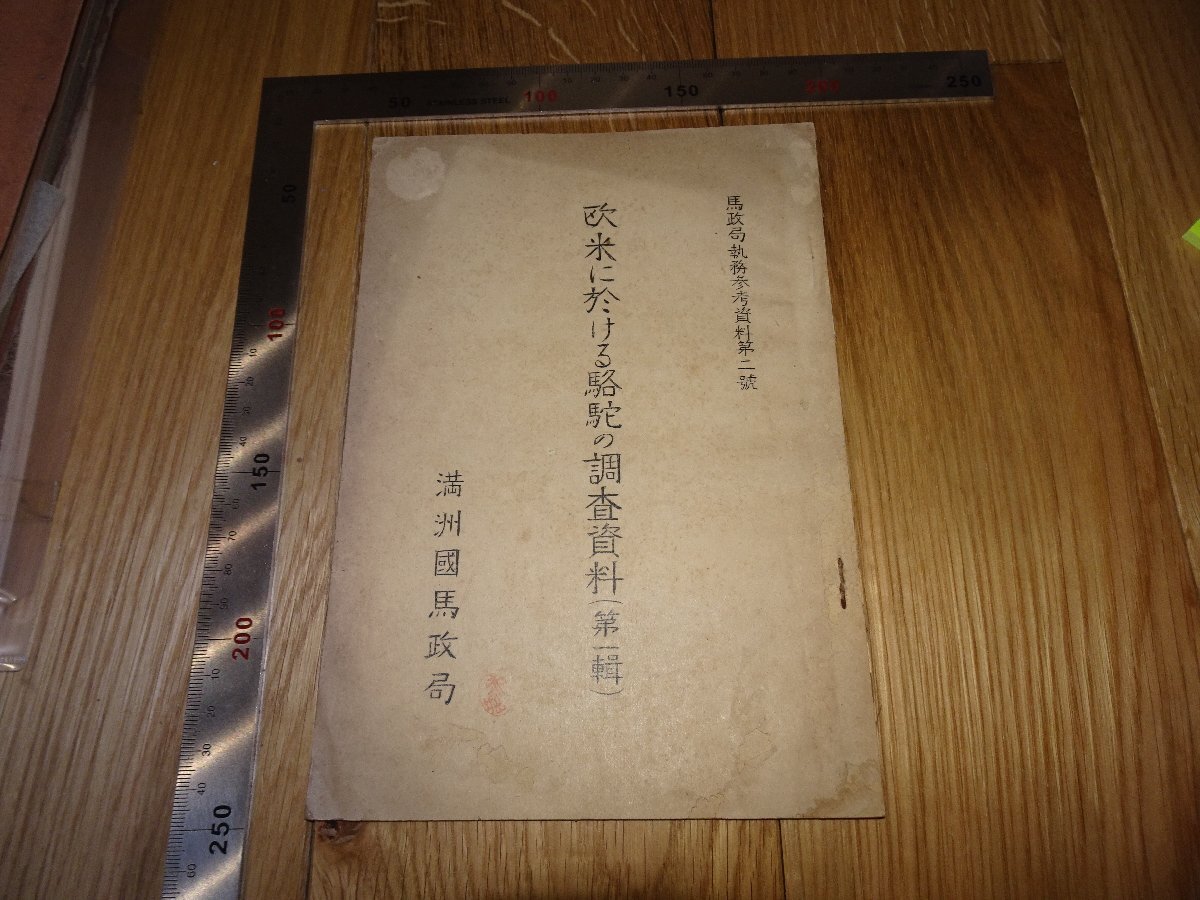 馬政局執務参考資料第二號
欧米に於ける駱駝の調査資料(第一輯)
満洲國馬政局
50
STAINLESS STEEL
100
150
200
250
50
100
150
200
250